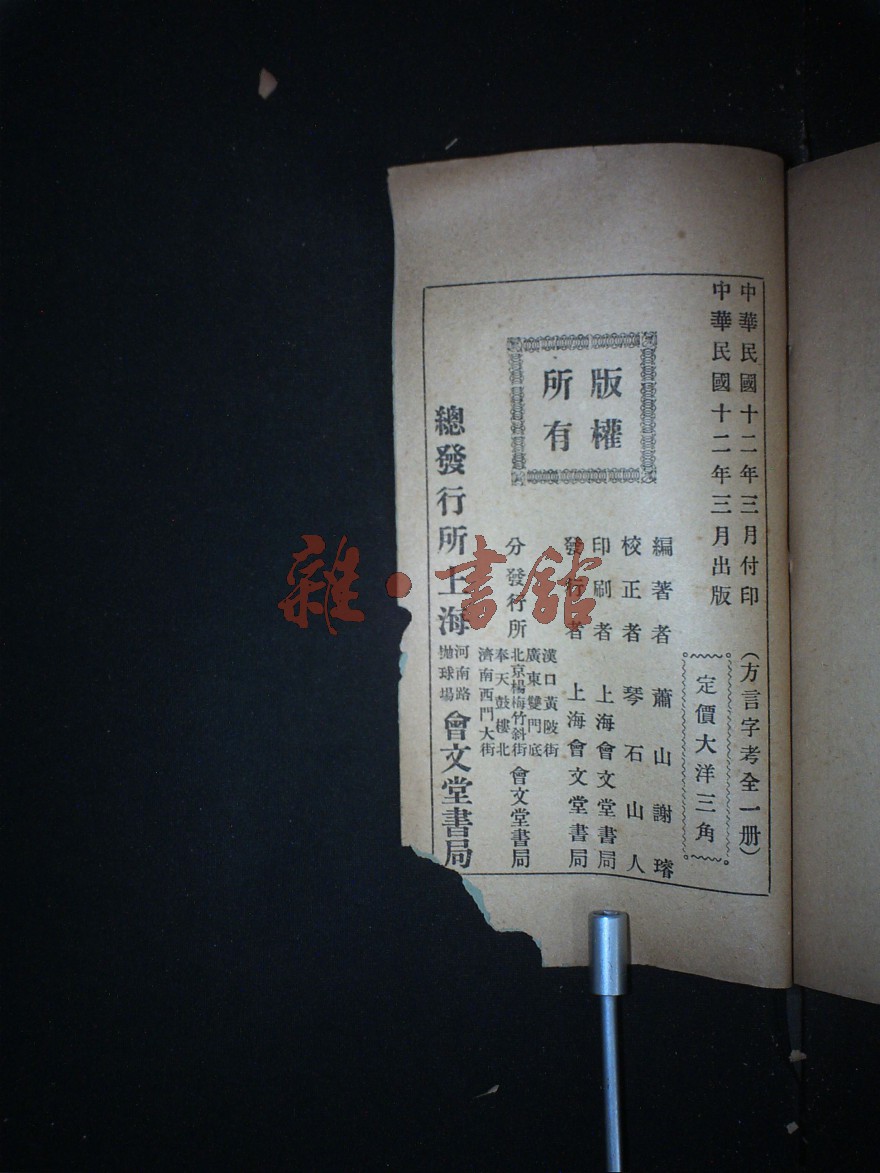 中華民國十二年三月付印
中華民國十二年三月出版
(方言字考全一册)
定價大洋三角
版權
所有
編著者 蕭山謝璿
校正者 琴石山人
印刷者 上海會文堂書局
發行者 上海會文堂書局
分發行所
漢口黃陂街
廣東雙門底
北京楊梅竹斜街
奉天鼓樓北
濟南西門大街
會文堂書局
總發行所上海
河南路
拋球場
會文堂書局
雜·書館